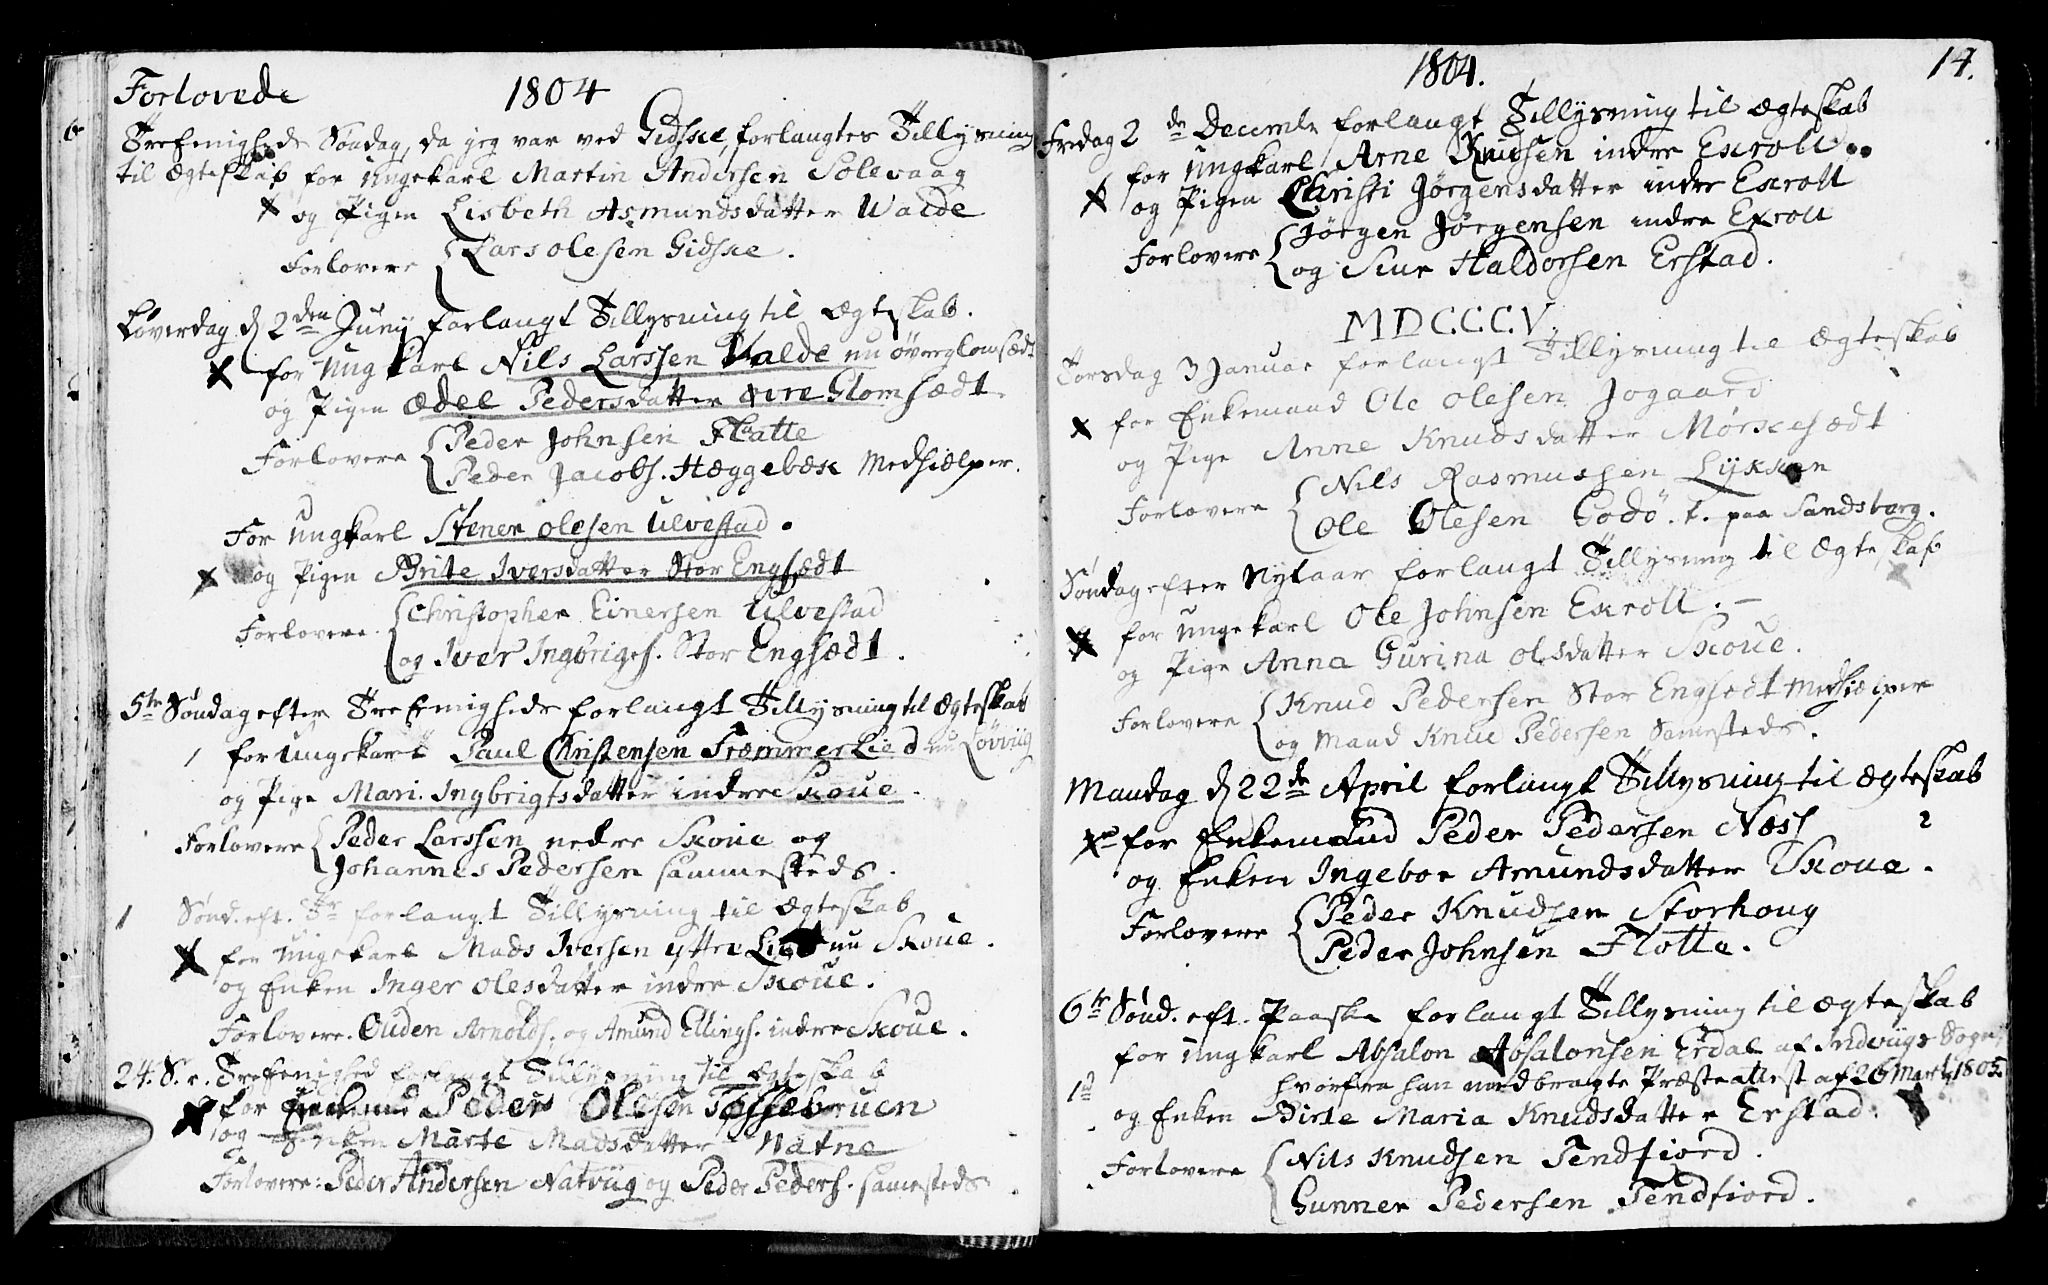 Forlovede 1804
Trefenigheds Søndag, da jeg var ved Gidske, forlangtes Tillysning
til Ægteskap for Ungekarl Martin Andersen Solevaag
og Pigen Lisbeth Asmundsdatter Walde
Forlovere Lars Olesen Gidske.
Løverdag d 2den Junij forlangt Tillysning til Ægteskab.
for Ungkarl Nils Larssen Walde nu øvre glomsædt
og Pigen Ædel Pedersdatter øvre Glomsædt.
Forlovere Peder Johnsen Flatte
Peder Jacobs. Hæggebæk Medhielper.
For Ungkarl Stener Olesen Ulvestad.
og Pigen Brite Iversdatter Stor Engsædt
Forlovere Christopher Einersen Ulvestad
og Iver Ingbrigts. Stor Engsædt.
5te Søndag efter Trefenigheds forlangt Tillysning til Ægteskab
for Ungekarl Paul Christensen Træmmerlied nu Løvviig
og Pige Mari Ingbrigtsdatter indre Skoue.
Forlovere Peder Larssen nedre Skoue og
Johannes Pedersen sammesteds.
1 Sønd. eft. Tr forlangt Tillysning til Ægteskab
for Ungekarl Mads Iversen yttre Lied nu Skoue.
og Enken Inger Olesdatter indre Skoue.
Forlovere. Ouden Arnolds. og Amund Ellings. indre Skoue.
24. S. e. Trefenighed forlangt Tillysning til Ægteskab
for Enkemand Peder Olesen Tøssebruen
og Enken Marte Madsdatter Watne
Forlovere: Peder Andersen Natviig og Peder Peders. samesteds
1804. 14.
Fredag 2 de Decembr forlangt Tillysning til Ægteskab
for Ungkarl Arne Knudsen indre Exroll
og Pigen Christi Jørgensdatter indre Exroll
Forlovere Jørgen Jørgensen indre Exroll
og Siur Haldorsen Erstad.
MDCCCV.
Torsdag 3 Januar forlangt Tillysning til Ægteskab
for Enkemand Ole Olesen Jogaard
og Pige Anne Knudsdatter Mørkesædt
Forlovere Nils Rasmussen Lykken
Ole Olesen Godø. t. paa Sandsborg.
Søndag efter Nytaar forlangt Tillysning til Ægteskab
for Ungekarl Ole Johnsen Exroll.
og Pige Anna Gurina Olsdatter Skoue.
Forlovere Knud Pedersen Stor Engsædt Medhielper
og Mand Knud Pedersen Samesteds.
Mandag d 22de April forlangt Tillysning til Ægteskab
for Enkemand Peder Pedersen Næss 2
og Enken Ingebor Amundsdatter Skoue.
Forlovere Peder Knudsen Storhoug
Peder Johnsen Flotte.
6te Sønd. eft. Paaske forlangt Tillysning til Ægteskab
for Ungkarl Absalon Absalonsen Erdal af Indviigs Sogn
hvorfra han medbragte Præsteattest af 26 Martz 1805.
og Enken Birte Maria Knudsdatter Erstad.
Forlovere Nils Knudsen Tendfiord.
Gunner Pedersen Tendfiord.